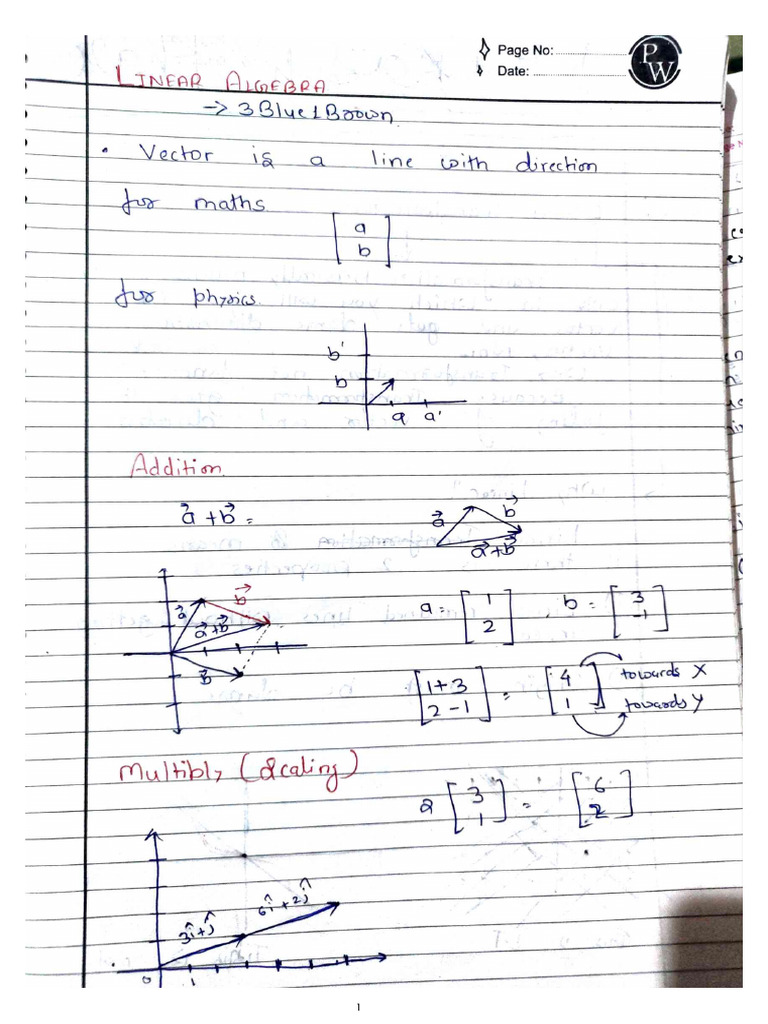 Page No:
Date:
PW
LINEAR ALGEBRA
→ 3Blue1Brown
• Vector is a line with direction
for maths
[a
b]
for physics.
b'
b
a a'
Addition
a⃗ + b⃗ =
a⃗ b⃗
a⃗+b⃗
a⃗ b⃗
a⃗+b⃗
b⃗
a = [1
2] b = [3
-1]
[1+3
2-1] = [4
1] towards X
towards Y
Multibly (scaling)
2 [3
1] = [6
2]
3î+ĵ 6î+2ĵ
0 1
1